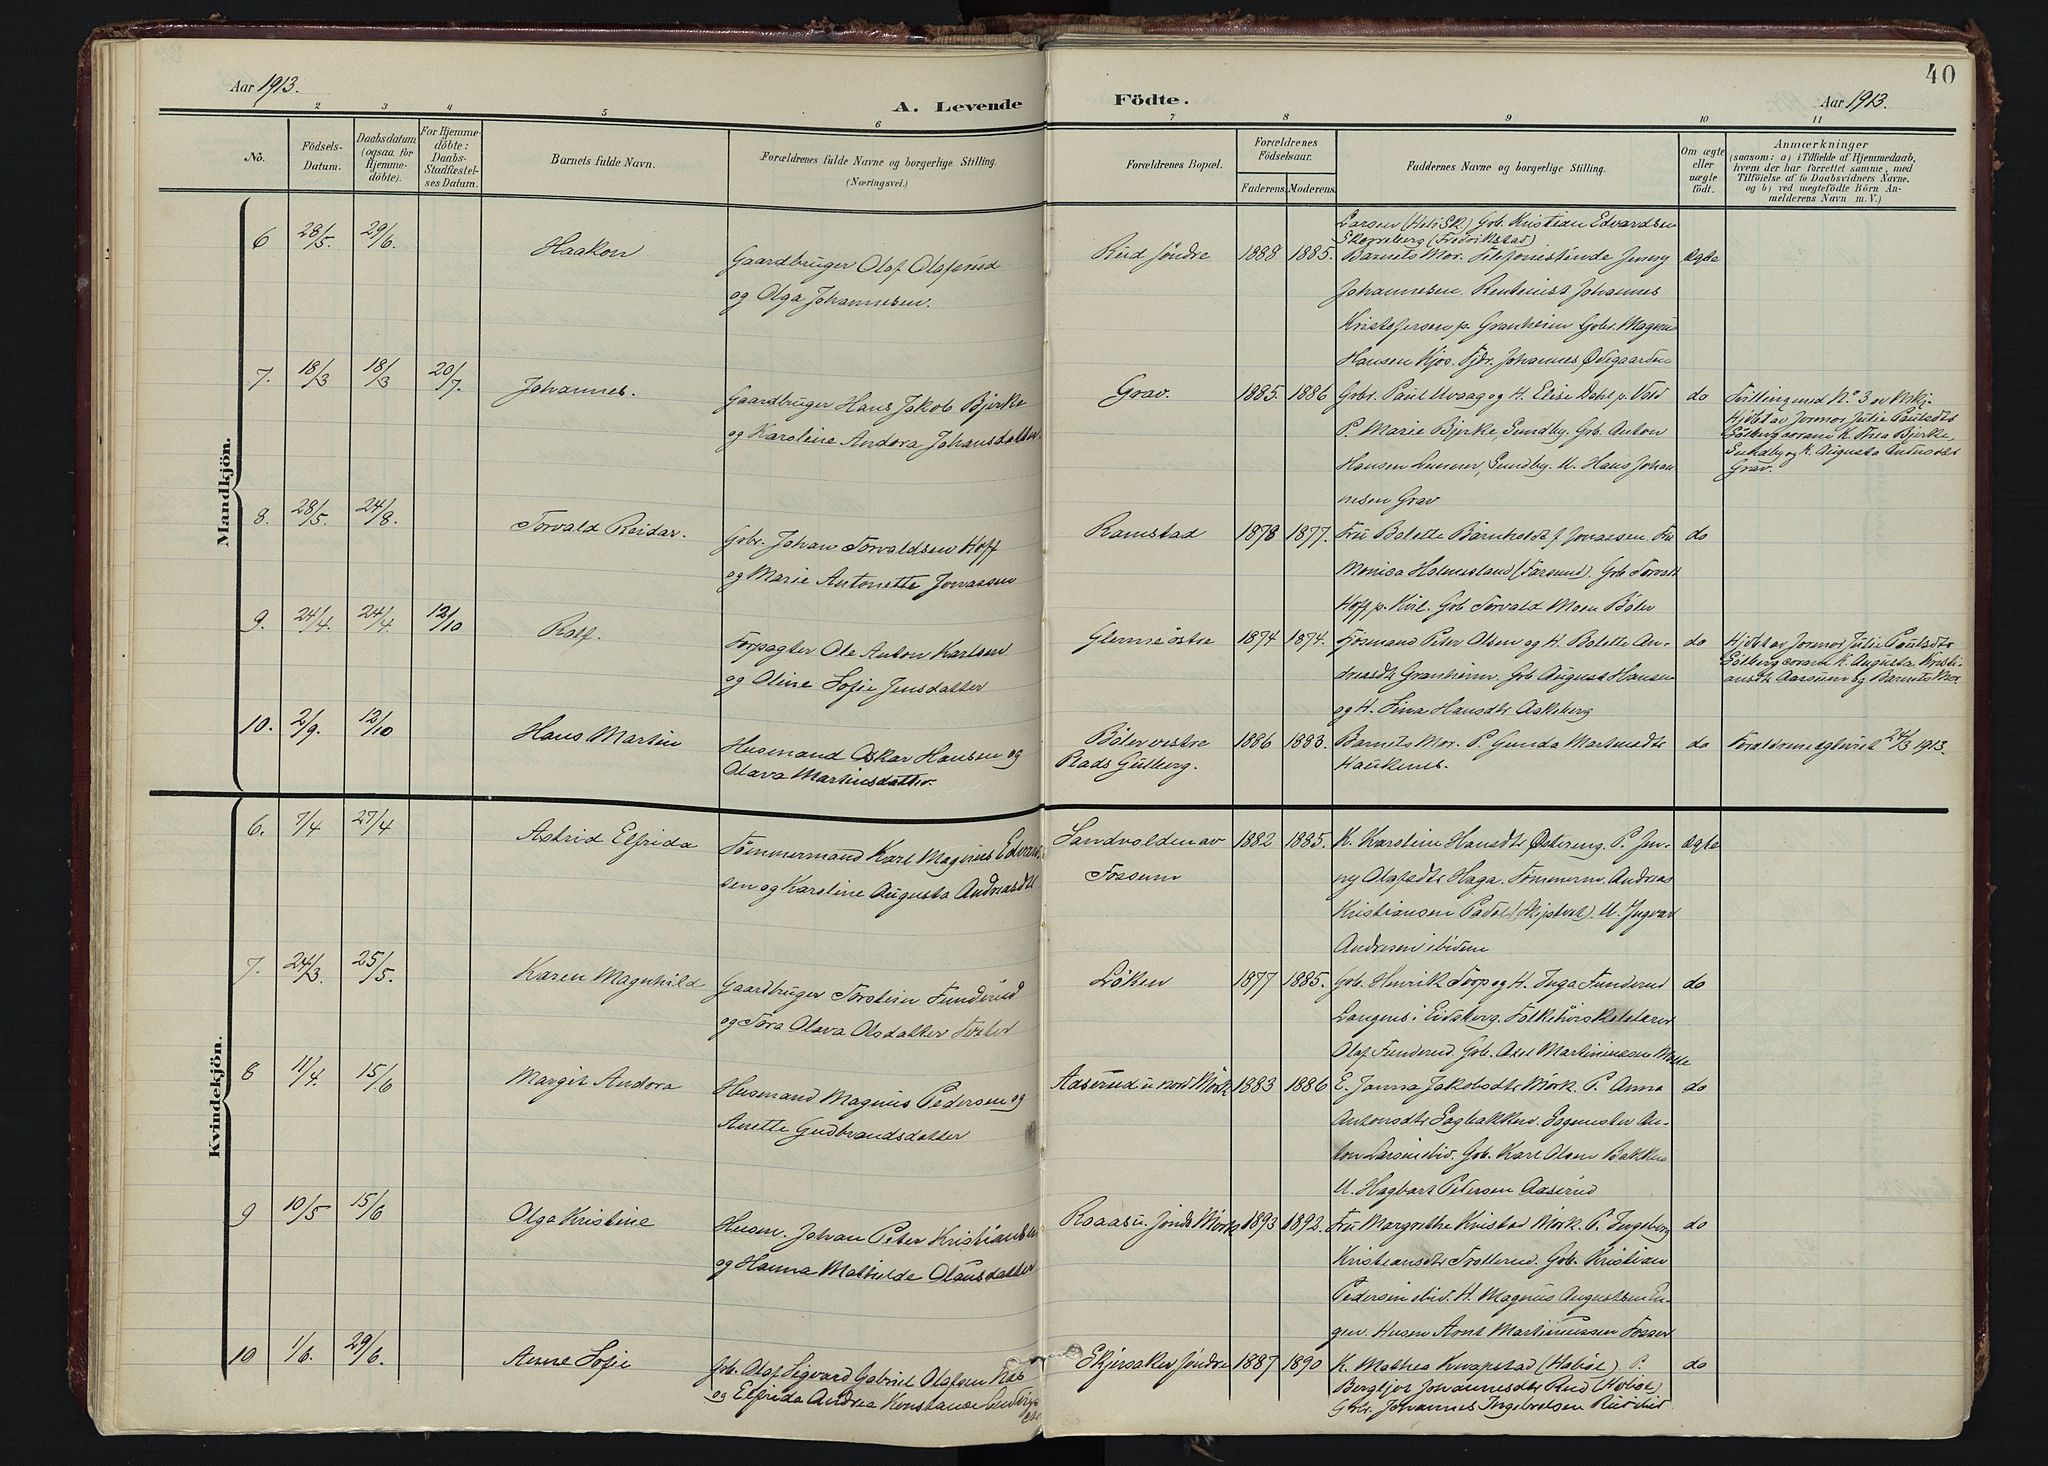 Aar 1913.
A. Levende
Födte.
Aar 1913.
40
2 3 4 5 6 7 8 9 10 11
No.
Födsels-
Datum.
Daabsdatum
(ogsaa for
Hjemme-
döbte).
For Hjemme-
döbte:
Daabs-
Stadfæstel-
ses Datum.
Barnets fulde Navn.
Forældrenes fulde Navne og borgerlige Stilling.
(Næringsvei.)
Forældrenes Bopæl.
Forældrenes
Födselsaar.
Faderens.
Moderens.
Faddernes Navne og borgerlige Stilling.
Om ægte
eller
uægte
født.
Anmærkninger
(saasom: a) i Tilfælde af Hjemmedaab,
hvem der har forrettet samme, med
Tilföielse af to Daabsvidners Navne.
og b) ved uægtefödte Börn An-
melderens Navn m. V.)
Mandkjön.
6 28/5. 29/6. Haakon
Gaardbruger Olaf Olafsrud
og Olga Johannesen.
Rud söndre 1888 1885.
Larsen Gbr. Kristian Edvardsen
(Fredrikstad)
Barnets Mor. Telefonistinde Jenny
Johannesen. Rentenist Johannes
Kristofersen p. Granheim Gbr. Magnus
Hansen Kjos. Johannes Ödegaarden
ægte
7. 18/3 18/3 20/7. Johannes.
Gaardbruger Hans Jakob Bjerke
og Karoline Andora Johansdatter
Grav. 1885. 1886
Gbr. Paul Uvaag og H. Elise Dahl p. Vold
P. Marie Bjerke, Sundby. Gbr. Anton
Hansen Sundby. U. Hans Johan-
nesen Grav
do
Tvilling med No 3 av
Hjdöbt av Jormor Julie Paulsdtr
Gulberg coram K. Thea Bjerke,
Sundby og K. Augusta
Grav.
8. 28/5. 24/8. Torvald Reidar.
Gbr. Johan Torvaldsen Hoff
og Marie Antonette Jonassen
Ramstad 1878 1877.
Fru Bolette f. Jonassen. Fr.
Monica Holmesland (Farsund). Gbr Torvald
Hoff p. Gbr Torvald Moen Böler
do
9. 24/4. 24/4. 12/10 Rolf.
Forpagter Ole Anton Karlsen
og Oline Sofie Jensdatter
Glenne östre 1874 1874.
Peter Olsen og H. Bolette An-
dreasdtr Granheim. Gbr August Hansen
og H. Lina Hansdtr Askeberg
do
Hjdöbt av Jormor Julie Paulsdtr
Gulberg coram K. Augusta Kristi-
ansdtr og Barnets Mor
10. 2/9. 12/10 Hans Martin
Husmand Oskar Hansen og
Olava Martinsdatter.
Böler vestre
Plads Gulberg.
1886 1883.
Barnets Mor. P. Gunda Martinsdtr
Haukenes.
do
Forældrene ægteviet 24/3 1913.
Kvindekjön.
6. 7/4 27/4 Astrid Elfrida
Tömmermand Karl Magnus Edvard-
sen og Karoline Augusta Andreasdtr
Sandvolden av
Fossum
1882 1885.
K. Karoline Hansdtr Östereng. P. Jen-
ny Olafsdtr Haga. Tömmerm. Andreas
Kristiansen U. Ingvar
Andresen ibidem
ægte
7. 24/3. 25/5. Karen Magnhild
Gaardbruger Torstein Funderud
og Tora Olava Olsdatter
Löken 1877 1885.
Gbr. Henrik Torp og H. Inga Funderud
i Eidsberg. Folkehöiskolelærer
Olaf Funderud. Gbr. Axel Martinussen
do
8 11/4. 15/6 Margit Andora
Husmand Magnus Pedersen og
Anette Gudbrandsdatter
Aaserud u. nord Mörk 1883 1886
E. Janna Jakobsdtr Mörk. P. Anna
Antonsdtr Sagbakken. Sagmester An-
ton Larsen ibid. Gbr. Karl Olsen Bakken
U. Hagbart Petersen Aaserud
do
9 10/5 15/6 Olga Kristine
Husm. Johan Peter Kristiansen
og Hanna Mathilde Olausdatter
Roaas u. söndr Mörk 1893 1892.
Fru Margrethe Mörk. P. Ingeborg
Kristiansdtr Trollerud. Gbr. Kristian
Pedersen ibid. H. Magnus Augustsen En-
gen. Husm Arnt Martinussen Fosser
do
10 1/6. 29/6. Anne Sofie
Gbr. Olaf Sigvard Gabriel Olafsen
og Elfrida Andrea Konstance
Skjersaker söndre 1887 1890
K. Mathea Kvapstad (Hobøl) P.
Bergljot Johannesdtr Rud (Hobøl)
Gbr. Johannes Ingebretsen Rud ibid
do